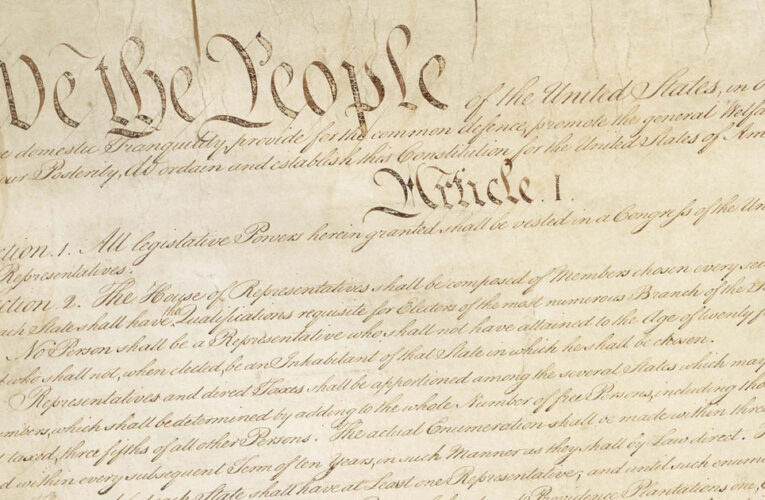 We the People of the United States, in O
e domestic Tranquility, provide for the common defence, promote the general Welfa
our Posterity, do ordain and establish this Constitution for the United States of Am
Article. I.
ction. 1. All legislative Powers herein granted shall be vested in a Congress of the Un
Representatives.
ction. 2. The House of Representatives shall be composed of Members chosen every sec
ach State shall have the Qualifications requisite for Electors of the most numerous Branch of the St
No Person shall be a Representative who shall not have attained to the Age of twenty f
who shall not, when elected, be an Inhabitant of that State in which he shall be chosen.
Representatives and direct Taxes shall be apportioned among the several States which may
mbers, which shall be determined by adding to the whole Number of free Persons, including tho
t taxed, three fifths of all other Persons. The actual Enumeration shall be made within three
d within every subsequent Term of ten Years, in such Manner as they shall by Law direct. T
State shall have at Least one Representative; and until such enum
Providence Plantations one,